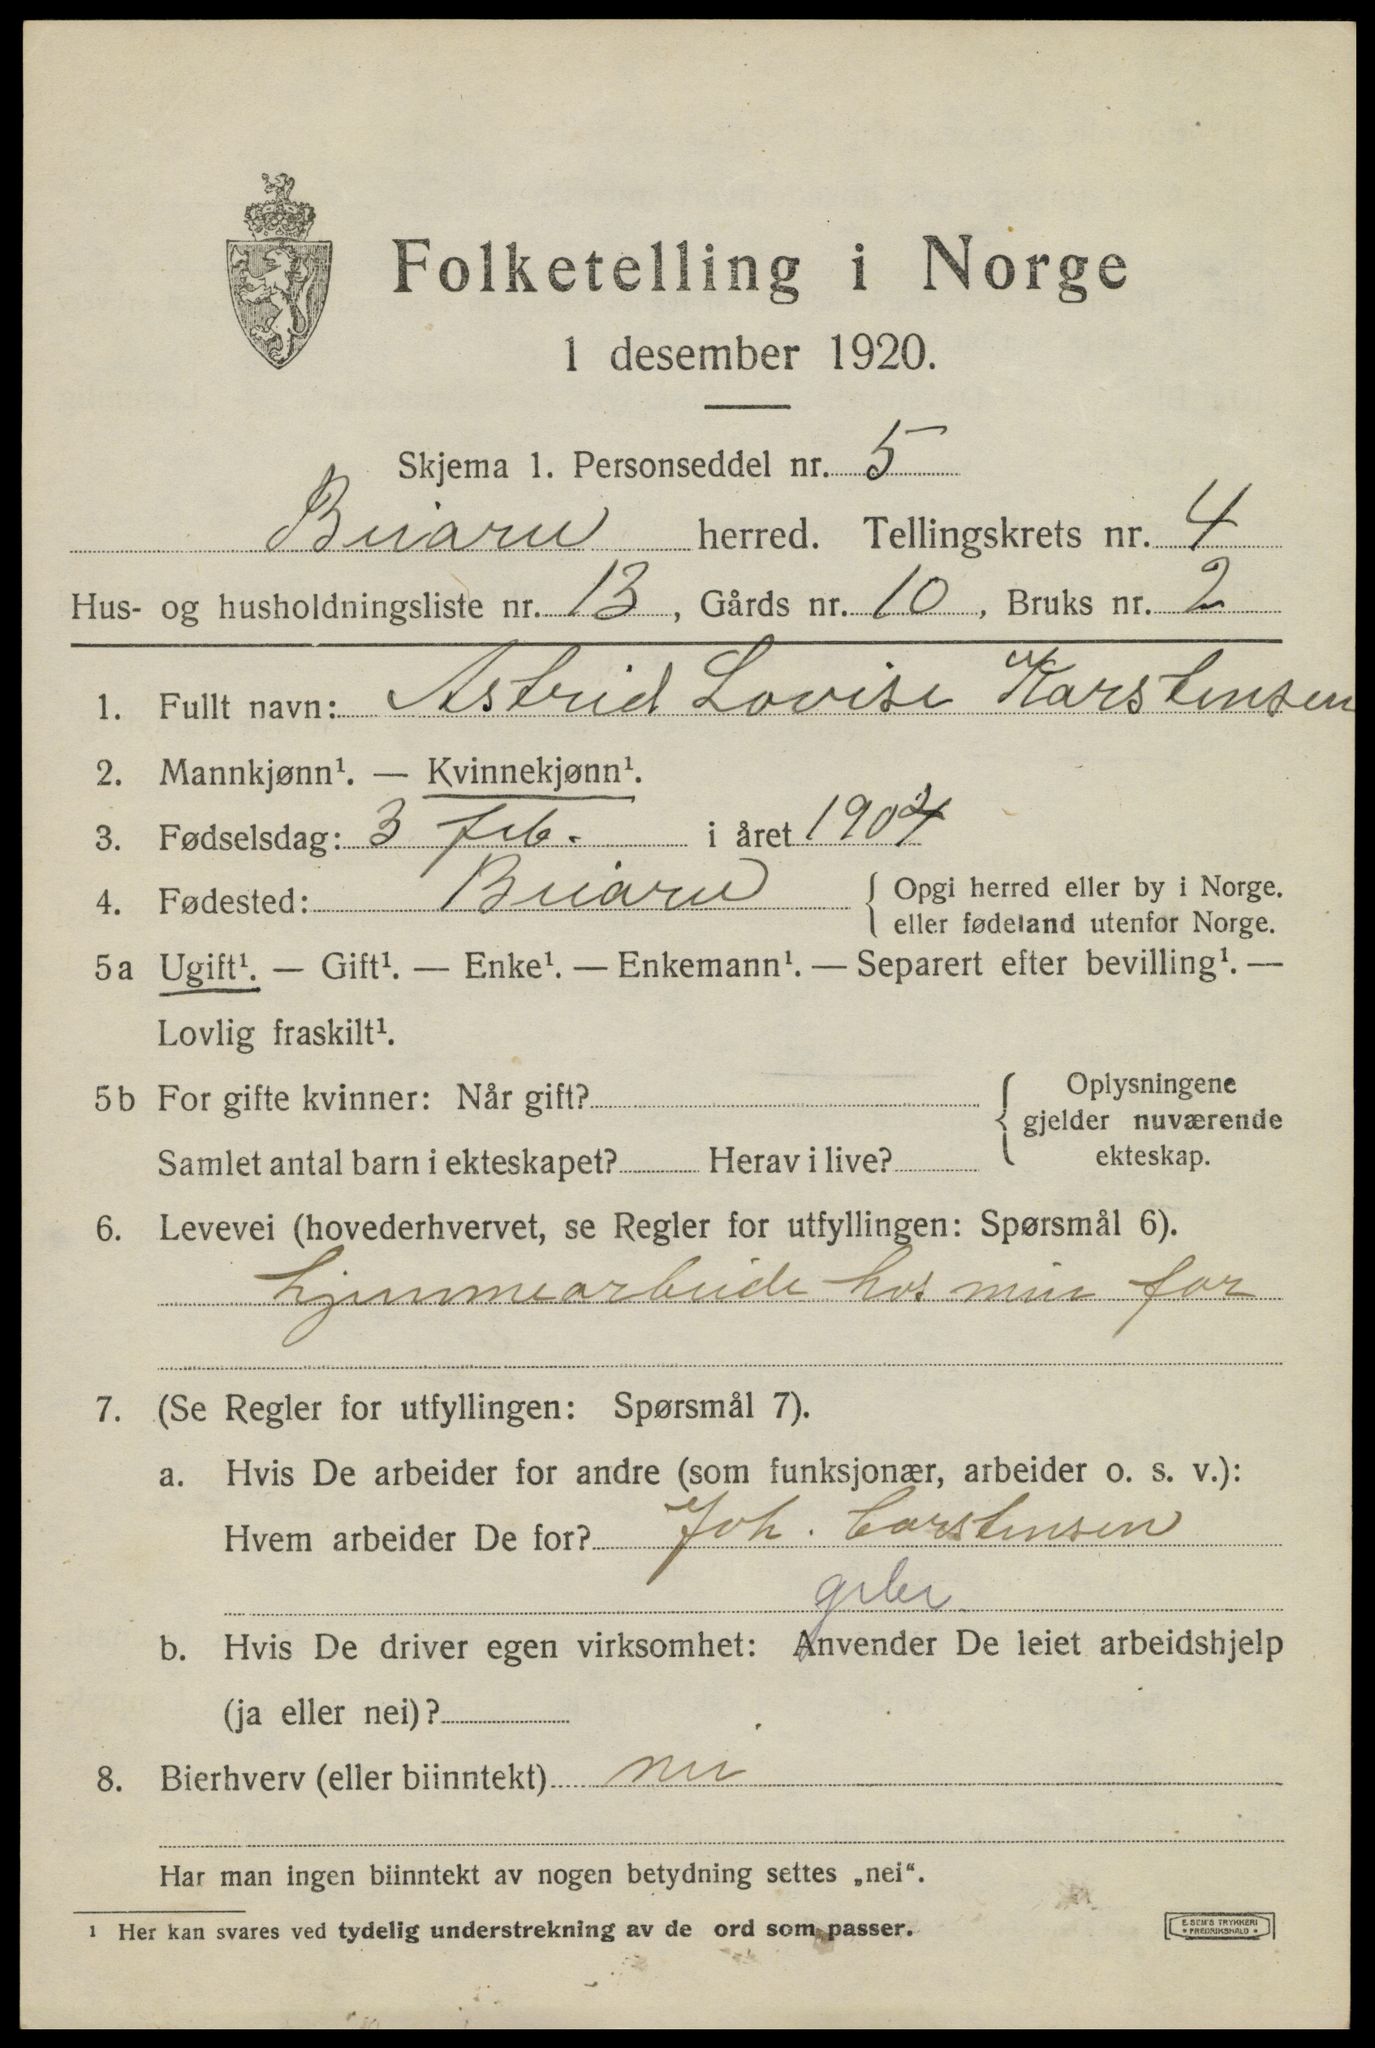 Folketelling i Norge
1 desember 1920.
Skjema 1. Personseddel nr. 5
Beiarn herred. Tellingskrets nr. 4
Hus- og husholdningsliste nr. 13, Gårds nr. 10, Bruks nr. 2
1. Fullt navn: Astrid Lovise Karstensen
2. Mannkjønn¹. — Kvinnekjønn¹.
3. Fødselsdag: 3 feb. i året 1904
4. Fødested: Beiarn { Opgi herred eller by i Norge.
eller fødeland utenfor Norge.
5a Ugift¹. — Gift¹. — Enke¹. — Enkemann¹. — Separert efter bevilling¹. —
Lovlig fraskilt¹.
5b For gifte kvinner: Når gift? { Oplysningene
gjelder nuværende
Samlet antal barn i ekteskapet? Herav i live? ekteskap.
6. Levevei (hovederhvervet, se Regler for utfyllingen: Spørsmål 6).
hjemmearbeide hos min far
7. (Se Regler for utfyllingen: Spørsmål 7).
a. Hvis De arbeider for andre (som funksjonær, arbeider o. s. v.):
Hvem arbeider De for? Joh. Carstensen
b. Hvis De driver egen virksomhet: Anvender De leiet arbeidshjelp
(ja eller nei)?
8. Bierhverv (eller biinntekt) nei
Har man ingen biinntekt av nogen betydning settes „nei“.
¹ Her kan svares ved tydelig understrekning av de ord som passer.
E. SEM'S TRYKKERI
* FREDRIKSHALD *